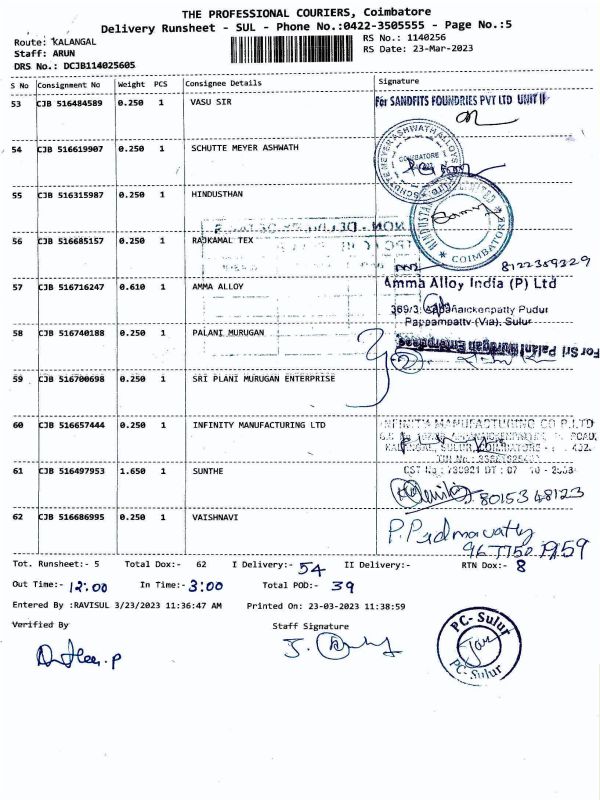 THE PROFESSIONAL COURIERS, Coimbatore
Delivery Runsheet - SUL - Phone No.:0422-3505555 - Page No.:5
Route: KALANGAL
RS No.: 1140256
Staff: ARUN
RS Date: 23-Mar-2023
DRS No.: DCJB114025605
S No Consignment No Weight PCS Consignee Details Signature
53 CJB 516484589 0.250 1 VASU SIR
For SANDFITS FOUNDRIES PVT LTD UNIT II
54 CJB 516619907 0.250 1 SCHUTTE MEYER ASHWATH
SCHUTTE MEYER ASHWATH ALLOYS
COIMBATORE
55 CJB 516315987 0.250 1 HINDUSTHAN
COIMBATORE
56 CJB 516685157 0.250 1 RAJKAMAL TEX
8122359329
57 CJB 516716247 0.610 1 AMMA ALLOY
Amma Alloy India (P) Ltd
Pappampatty (Via), Sulur
58 CJB 516740188 0.250 1 PALANI MURUGAN
For Sri Palani Murugan Enterprises
59 CJB 516700698 0.250 1 SRI PLANI MURUGAN ENTERPRISE
60 CJB 516657444 0.250 1 INFINITY MANUFACTURING LTD
INFINITY MANUFACTURING CO P.LTD
61 CJB 516497953 1.650 1 SUNTHE
80153 48123
62 CJB 516686995 0.250 1 VAISHNAVI
P. Padmavathy
Tot. Runsheet:- 5 Total Dox:- 62 I Delivery:- 54 II Delivery:- RTN Dox:- 8
Out Time:- 12:00 In Time:- 3:00 Total POD:- 39
Entered By :RAVISUL 3/23/2023 11:36:47 AM Printed On: 23-03-2023 11:38:59
Verified By Staff Signature
PC- Sulur
PC- Sulur